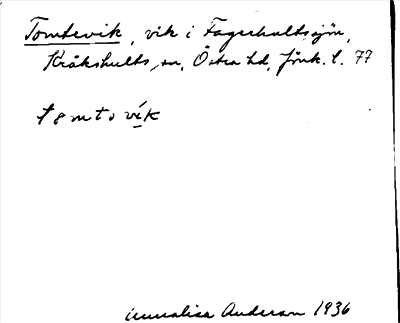 Tomtevik, vik i Fagerhultssjön,
Kråkshults sn, Östra hd, Jönk. l. 77
tomtovík
Annalisa Anderson 1936